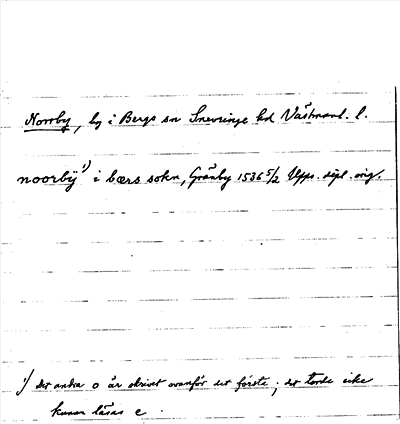 Norrby, by i Bergs sn Snevringe hd Västmanl. l.
noorbÿ ¹) i bærs sokn, Gränby 1536 5/2 Upps. dipl. orig.
¹) det andra o är skrivet ovanför det första; det torde icke
kunna läsas e.